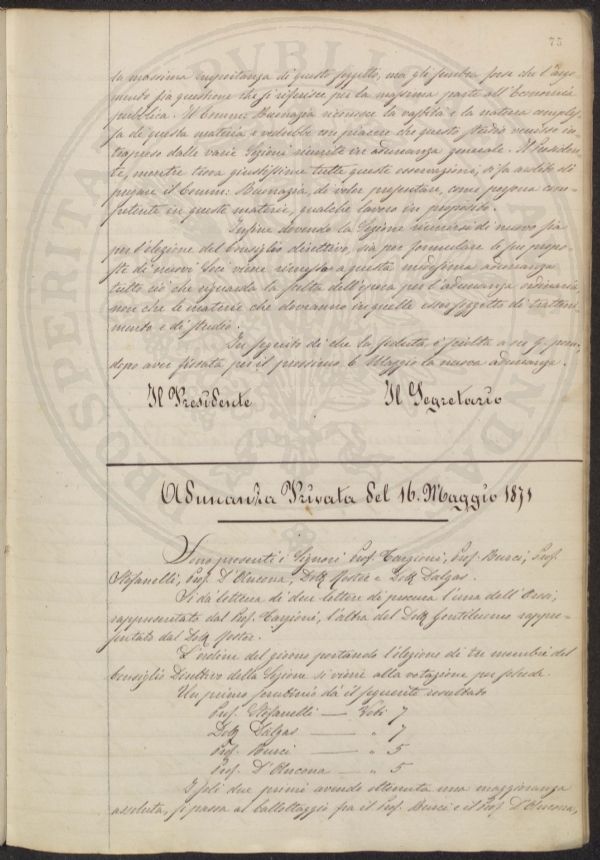 75
la massima importanza di questo soggetto, ma gli sembra forse che l'argo-
mento sia questione che si riferisce per la massima parte all'Economia
pubblica. Il Comm: Buonazia riconosce la vastità e la natura comples-
sa di questa materia e vedrebbe con piacere che questo studio venisse in-
trapreso dalle varie Sezioni riunite in adunanza generale. Il Presiden-
te, mentre trova giustissime tutte queste osservazioni, si fa ardito di
pregare il Comm: Buonazia, di voler presentare, come persona com-
petente in queste materie, qualche lavoro in proposito.
Infine dovendo la Sezione riunirsi di nuovo sia
per l'elezione del Consiglio direttivo, sia per formulare le sue propo-
ste di nuovi Soci viene rimesso a questa medesima adunanza
tutto ciò che riguarda la scelta dell'epoca per l'adunanza ordinaria
non che le materie che dovranno in quella esser soggetto di tratteni-
mento e di studio.
In seguito di che la seduta è sciolta a ore 9 pom:
dopo aver fissata per il prossimo 6 Maggio la nuova adunanza.
Il Presidente Il Segretario
Adunanza Privata del 16. Maggio 1871
Sono presenti i Signori Prof. Targioni, Prof. Burci, Prof.
Stefanelli, Prof. D'Ancona, Dott. Dalgas.
Si dà lettura di due lettere di procura l'una dell'Orosi,
rappresentato dal Prof. Targioni, l'altra del Dott. Gentiluomo rappre-
sentato dal Dott.
L'ordine del giorno portando l'elezione di tre membri del
Consiglio Direttivo della Sezione si viene alla votazione per schede.
Un primo scrutinio dà il seguente resultato
Prof. Stefanelli — Voti 7
Dott. Dalgas — " 7
Prof. Burci — " 5
Prof. D'Ancona — " 5
I soli due primi avendo ottenuta una maggioranza
assoluta, si passa al ballottaggio fra il Prof. Burci e il Prof. D'Ancona,
PROSPERITATI PVBLICAE